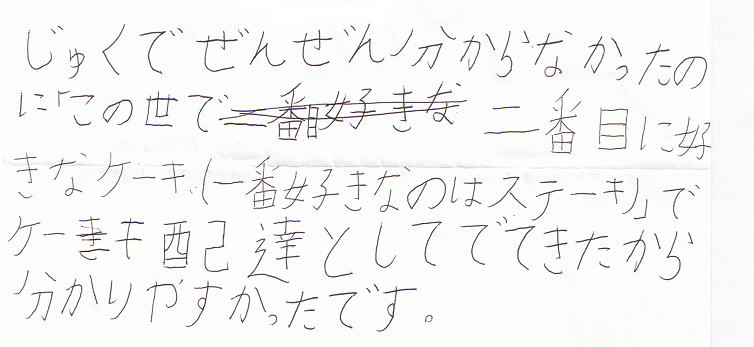 じゅくでぜんぜん分からなかったの
に「この世で二番目好きな 二番目に好
きなケーキ、(一番好きなのはステーキ)」で
ケーきキ配達としてでてきたから
分かりやすかったです。